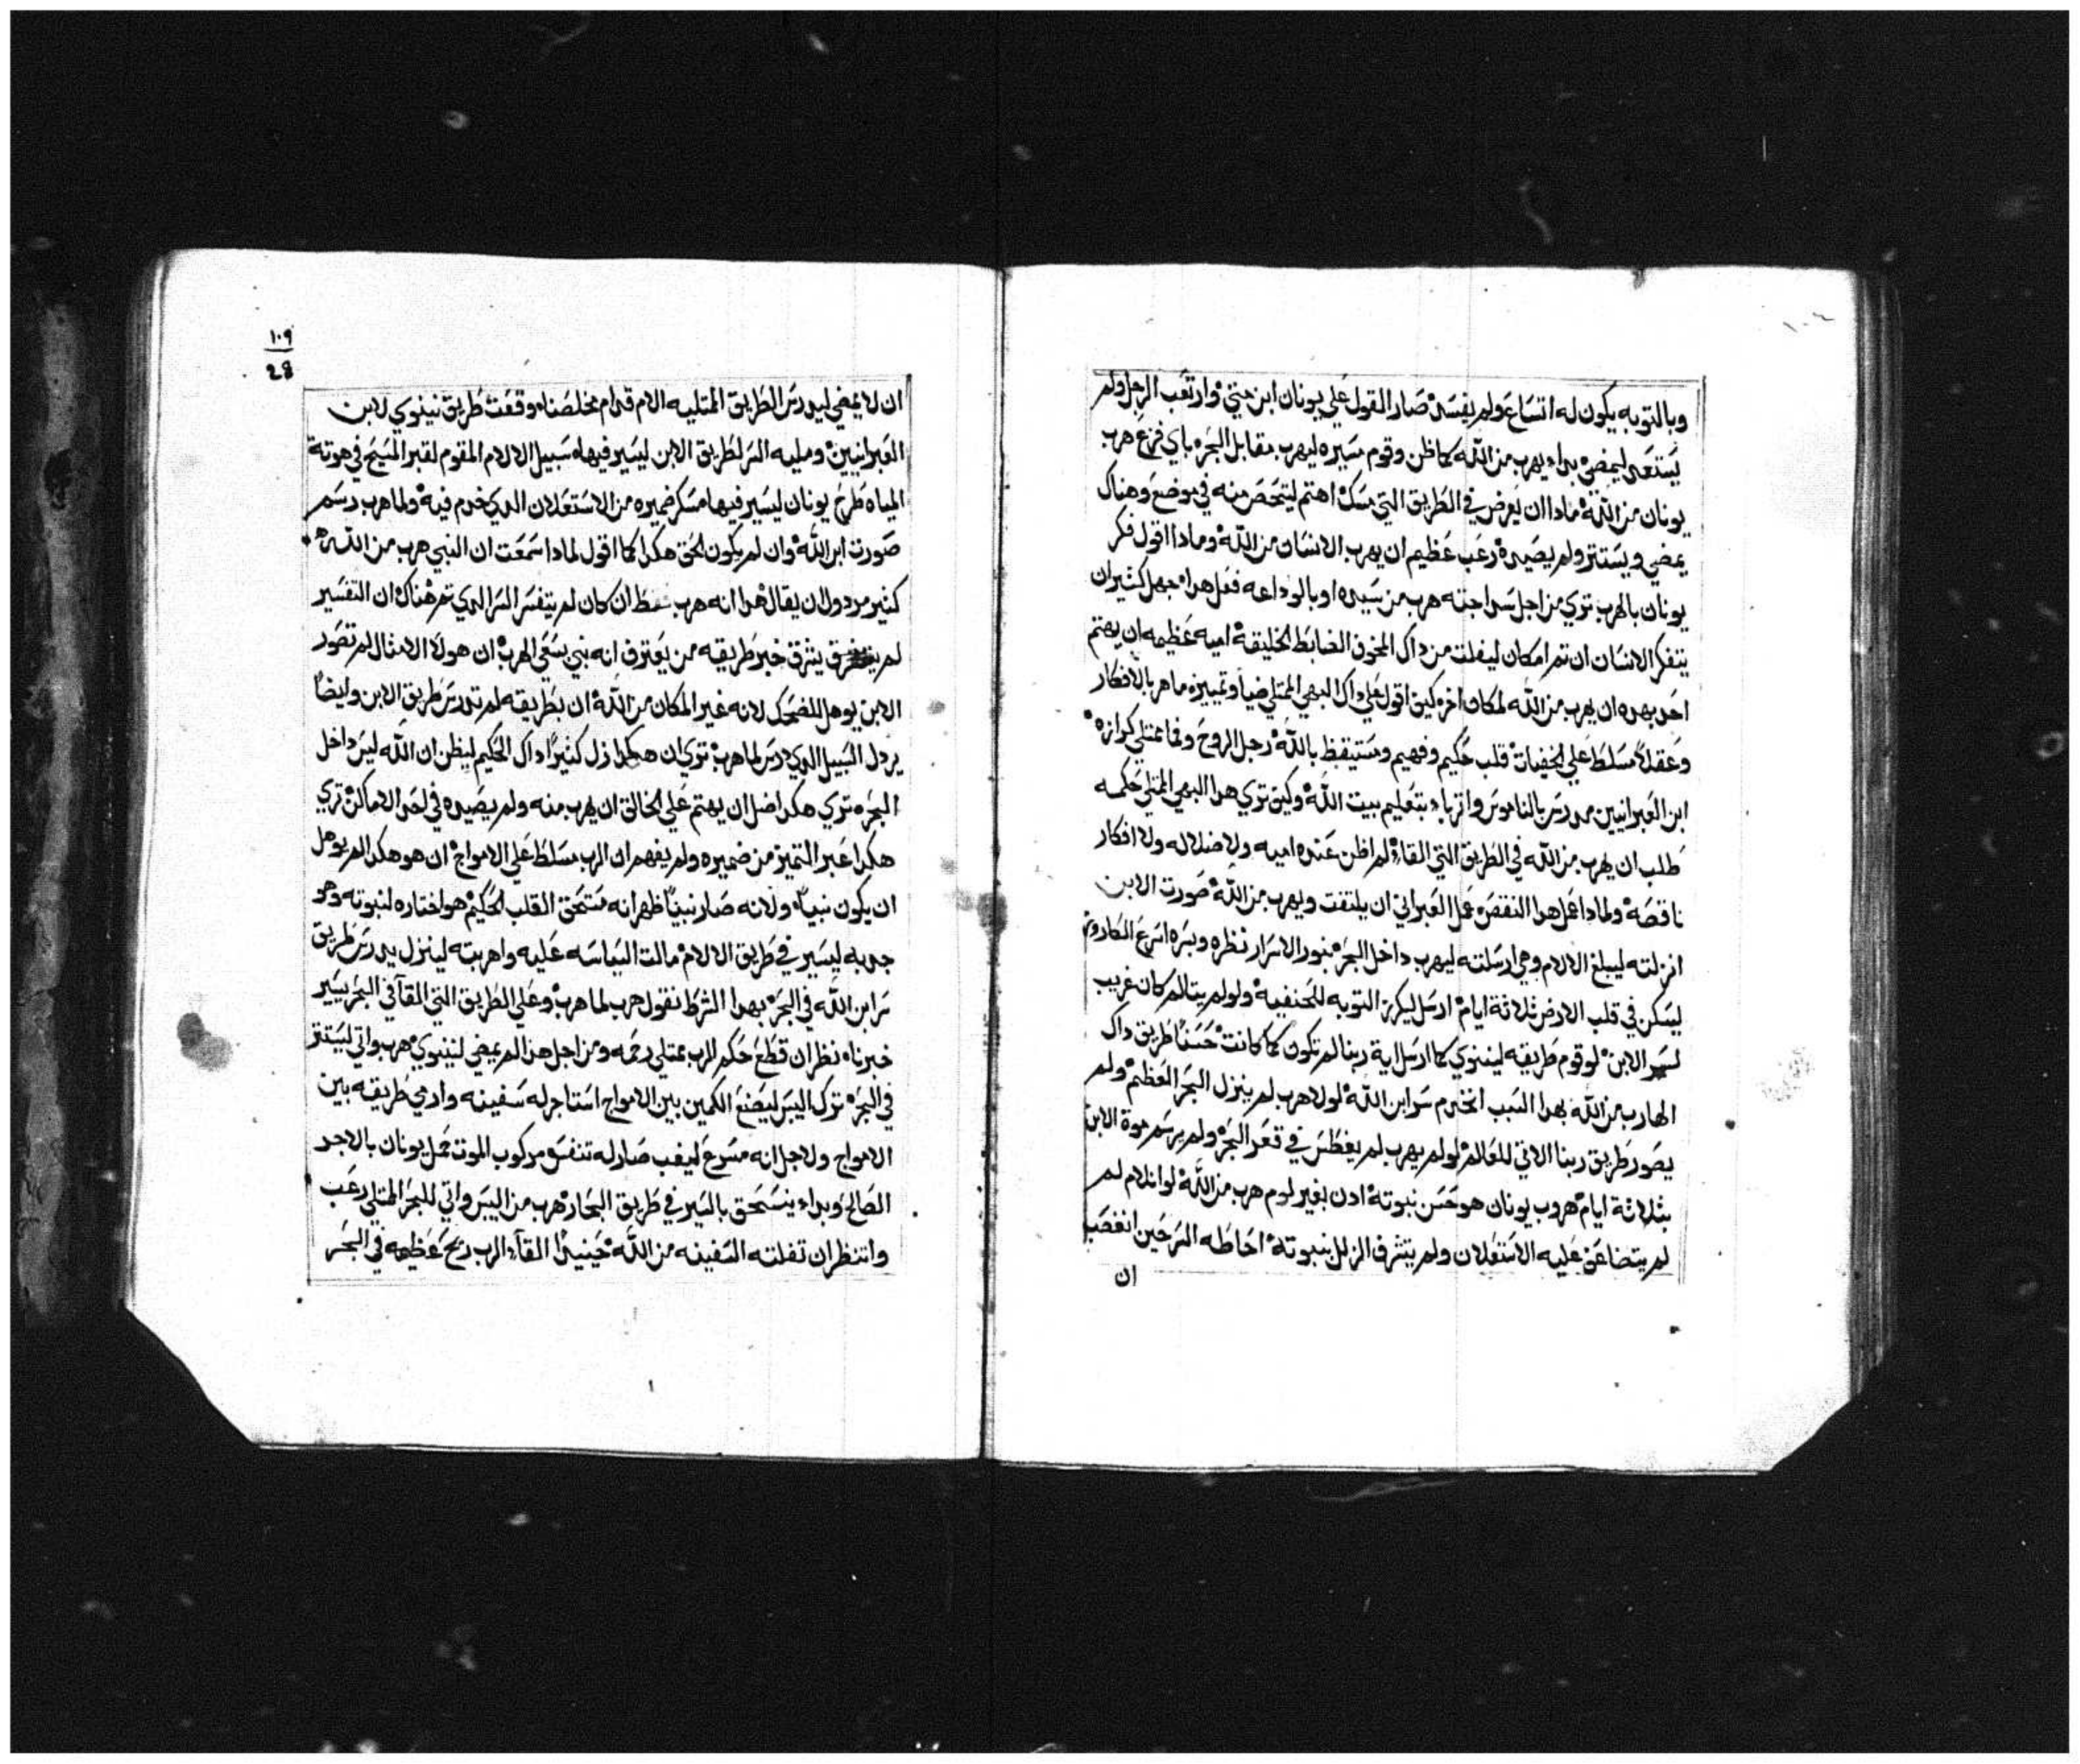 وبالتوبه يكون له اتساع ولم يفسد صار القول علي يونان ابن متي وارتعب الرجل ولم
يستعد ليمضي بداء يهرب من الله كما ظن وقوم مسيره ليهرب مقابل البحر باي فزع هرب
يونان من الله مادا ان يعرض في الطريق التي مسك اهتم ليتحصن منه في موضع وهناك
يمضي ويستتر ولم يصيده رعب عظيم ان يهرب الانسان من الله ومادا اقول فكر
يونان بالهرب تري من اجل سداجته هرب من سيده او بالوداعه فعل هدا جهل كثير ان
يتفكر الانسان ان تم امكان ليفلت من داك المخوف الضابط الخليقة اميه عظيمه ان يهتم
احد بهده ان يهرب من الله لمكان اخر كيف اقول علي داك البهي الممتلي ضيا وتمييزه ماهر بالافكار
وعقلا مسلط علي الخفيات قلب حكيم وفهيم ومستيقظ بالله رجل الروح وفما ممتلي كرازه
ابن العبرانيين مدرس بالناموس واترباء بتعليم بيت الله وكيف تري هدا البهي الممتلي حكمه
طلب ان يهرب من الله في الطريق التي القاء لم اظن عنده اميه ولا ضلاله ولا افكار
ناقصه ولمادا عمل هدا النقص عمل العبراني ان يلتفت ويهرب من الله صورت الابن
انزلته ليبلغ الالام وهي ارسلته ليهرب داخل البحر بنور الاسرار نظره وبسره اسرع الكاروز
ليسكن في قلب الارض ثلاثة ايام ارسل ليكرز التوبه للحنفيه ولو لم يتالم كان غريب
لسر الابن لو قوم طريقه لنينوي كما ارسل اية ربنا لم تكون كما كانت حسنا طريق داك
الهارب من الله بهدا السبب انخدم سر ابن الله لولا هرب لم ينزل البحر العظيم ولم
يصور طريق ربنا الاتي للعالم لو لم يهرب لم يغطس في قعر البحر ولم يرسم موة الابن
بثلاثة ايام هروب يونان هو حسن نبوته ادن بغير لوم هرب من الله لو انلام لم
لم يتضاعف عليه الاستعلان ولم يتشرف الزلل بنبوته احاطه السر حين انغصب
ان
١٠٩
28
ان لا يمضي ليدرس الطريق الممتليه الام قدام مخلصنا وقفت طريق نينوي لابن
العبرانيين ومليه السر لطريق الابن ليسير فيها سبيل الالام المقوم لقبر المسيح في هوتة
المياه طرح يونان ليسير فيها مسكر ضميره من الاستعلان الدي خدم فيه ولما هرب رسم
صورت ابن الله وان لم يكون الحق هكدا كما اقول لمادا سمعت ان النبي هرب من الله
كثير مردولا ان يقال هدا انه هرب فقط ان كان لم يتفسر السر الدي تم هناك ان التفسير
لم يشرق خبر طريقه من يعترف انه نبي يسعي الهرب ان هولا الامثال لم تصور
الابن يوهل للضحك لانه غير المكان من الله ان بطريقه لم تدرس طريق الابن وايضا
يردل السبيل الدي درس لما هرب تري ان هكدا زل كثيرا داك الحكيم ليظن ان الله ليس داخل
البحر تري هكدا ضل ان يهتم علي الخالق ان يهرب منه ولم يصيده في احد الاماكن تري
هكدا عبر التمييز من ضميره ولم يفهم ان الرب مسلط علي الامواج ان هو هكدا لم يوهل
ان يكون نبيا ولانه صار نبيا ظهر انه مستحق القلب الحكيم هو اختاره لنبوته وهو
جدبه ليسير في طريق الالام مالت السياسه عليه واهربته لينزل يدرس طريق
سر ابن الله في البحر بهدا الشرط نقول هرب لما هرب وعلي الطريق التي القآ في البحر يسير
خبرناه نظر ان قطع حكم الرب ممتلي رحمه ومن اجل هدا لم يمضي لنينوي هرب واتي ليستتر
في البحر ترك اليبس ليضع الكمين بين الامواج استاجر له سفينه وادمي طريقه بين
الامواج ولاجل انه مسرع ليغب صار له تنفس مركوب الموت حمل يونان بالاجر
الصالح وبداء يستحق بالسير في طريق البحار هرب من اليبس واتي للبحر الممتلي رعب
وانتظر ان تفلته السفينه من الله حينيدا القآء الرب ريح عظيمه في البحر